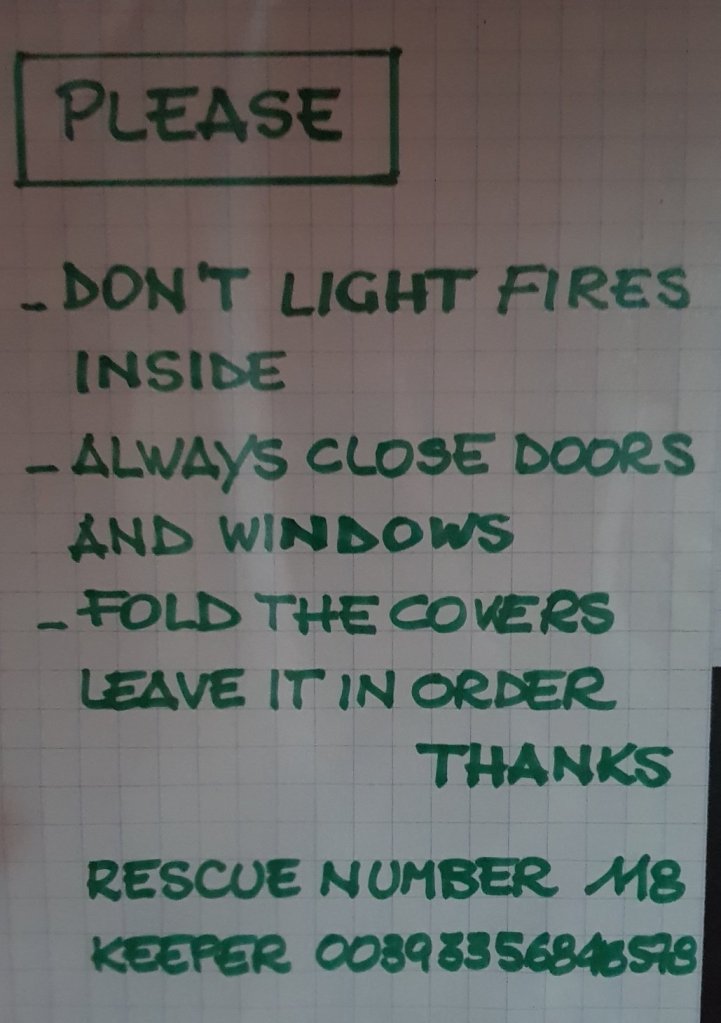 PLEASE
- DON'T LIGHT FIRES
INSIDE
- ALWAYS CLOSE DOORS
AND WINDOWS
- FOLD THE COVERS
LEAVE IT IN ORDER
THANKS
RESCUE NUMBER 118
KEEPER